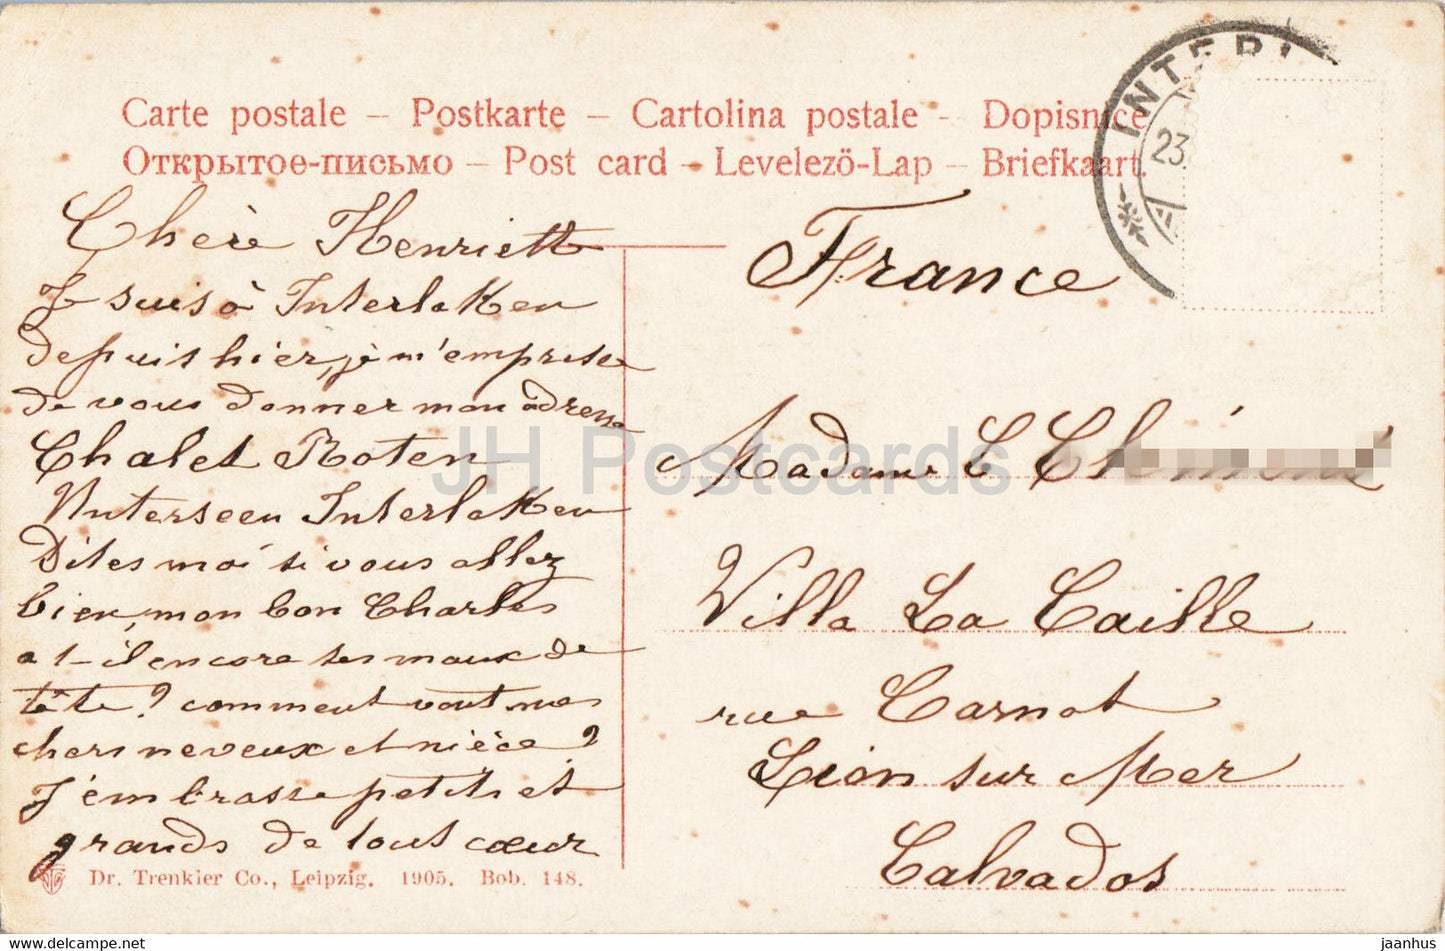 Carte postale – Postkarte – Cartolina postale - Dopisnice
Открытое-письмо – Post card – Levelezö-Lap – Briefkaart.
INTERL
23
Chère Henriett
Je suis à Interlaken
depuis hier, je m'emprese
de vous donner mon adresse
Chalet Roten
Unterseen Interlaken
Dites moi si vous allez
bien, mon bon Charles
a t-il encore ses maux de
tête? comment vont mes
chers neveux et nièce?
J'embrasse petits et
grands de tout cœur
Dr. Trenkler Co., Leipzig. 1905. Bob. 148.
France
Madame C
Villa La Caille
rue Carnot
Lion sur Mer
Calvados
JH Postcards
hip.postcard.com/store/jaanhus